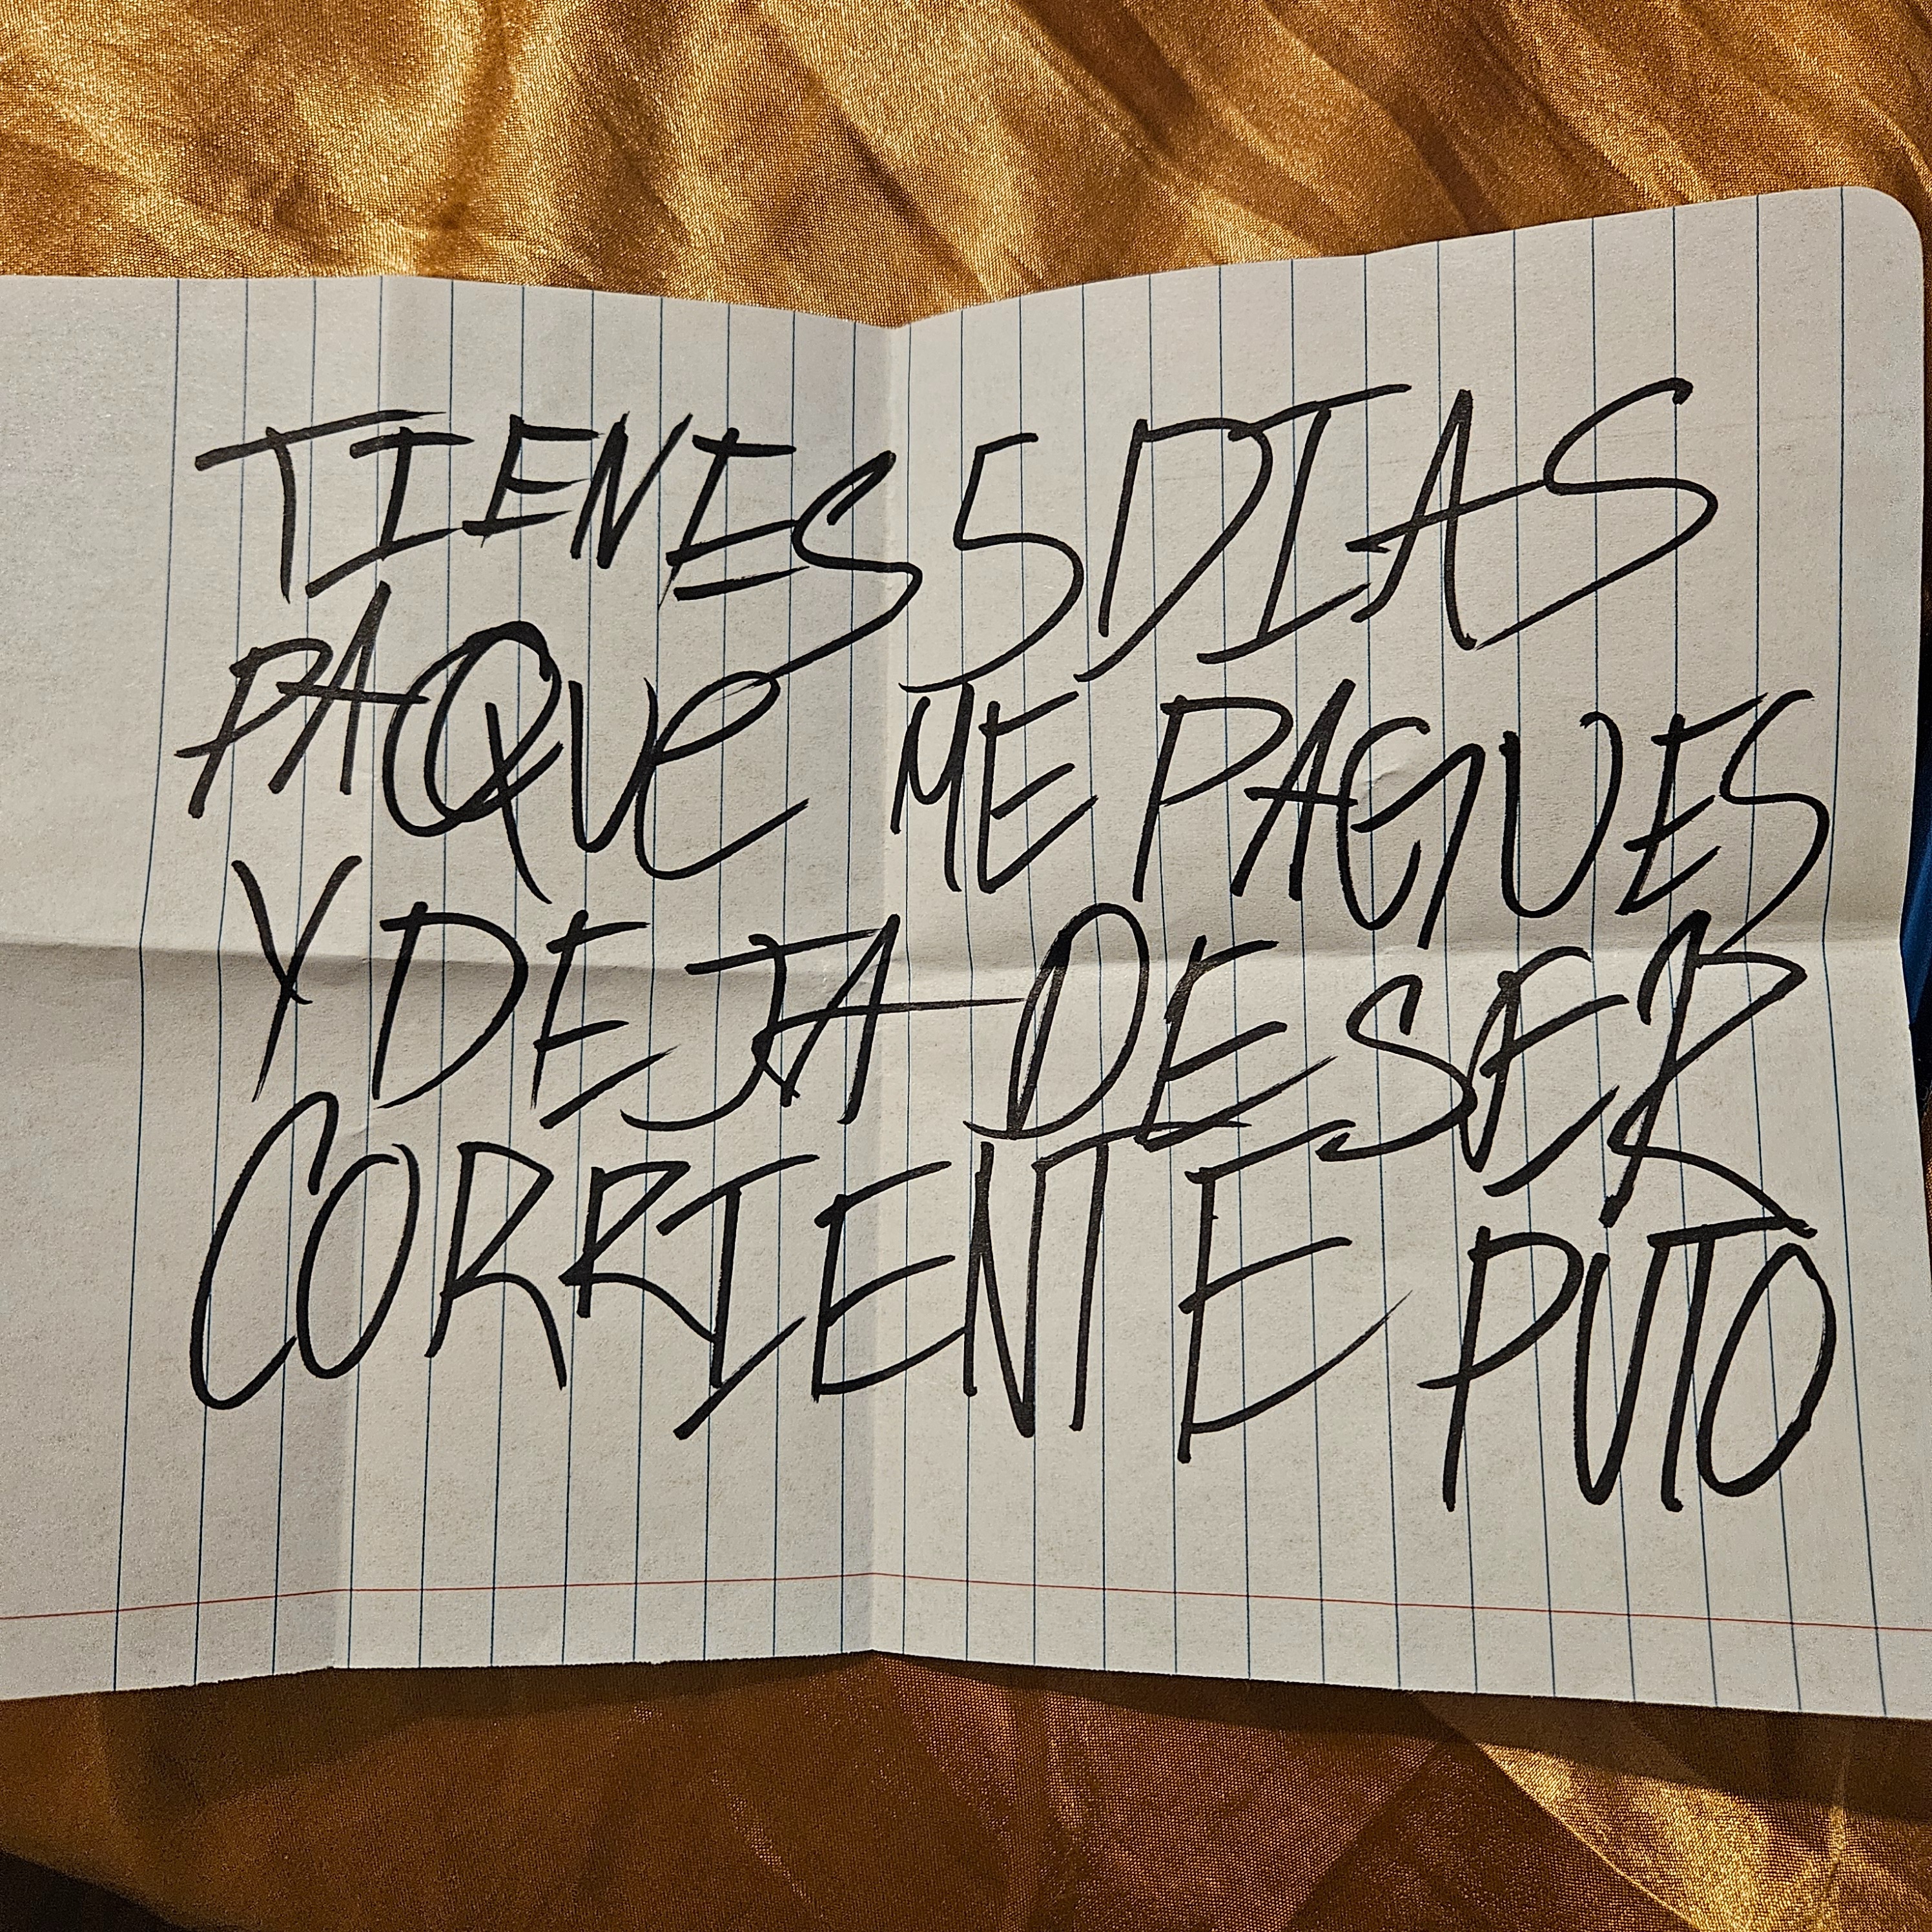 TIENES 5 DIAS
PAQUE ME PAGUES
Y DEJA DE SER
CORRIENTE PUTO